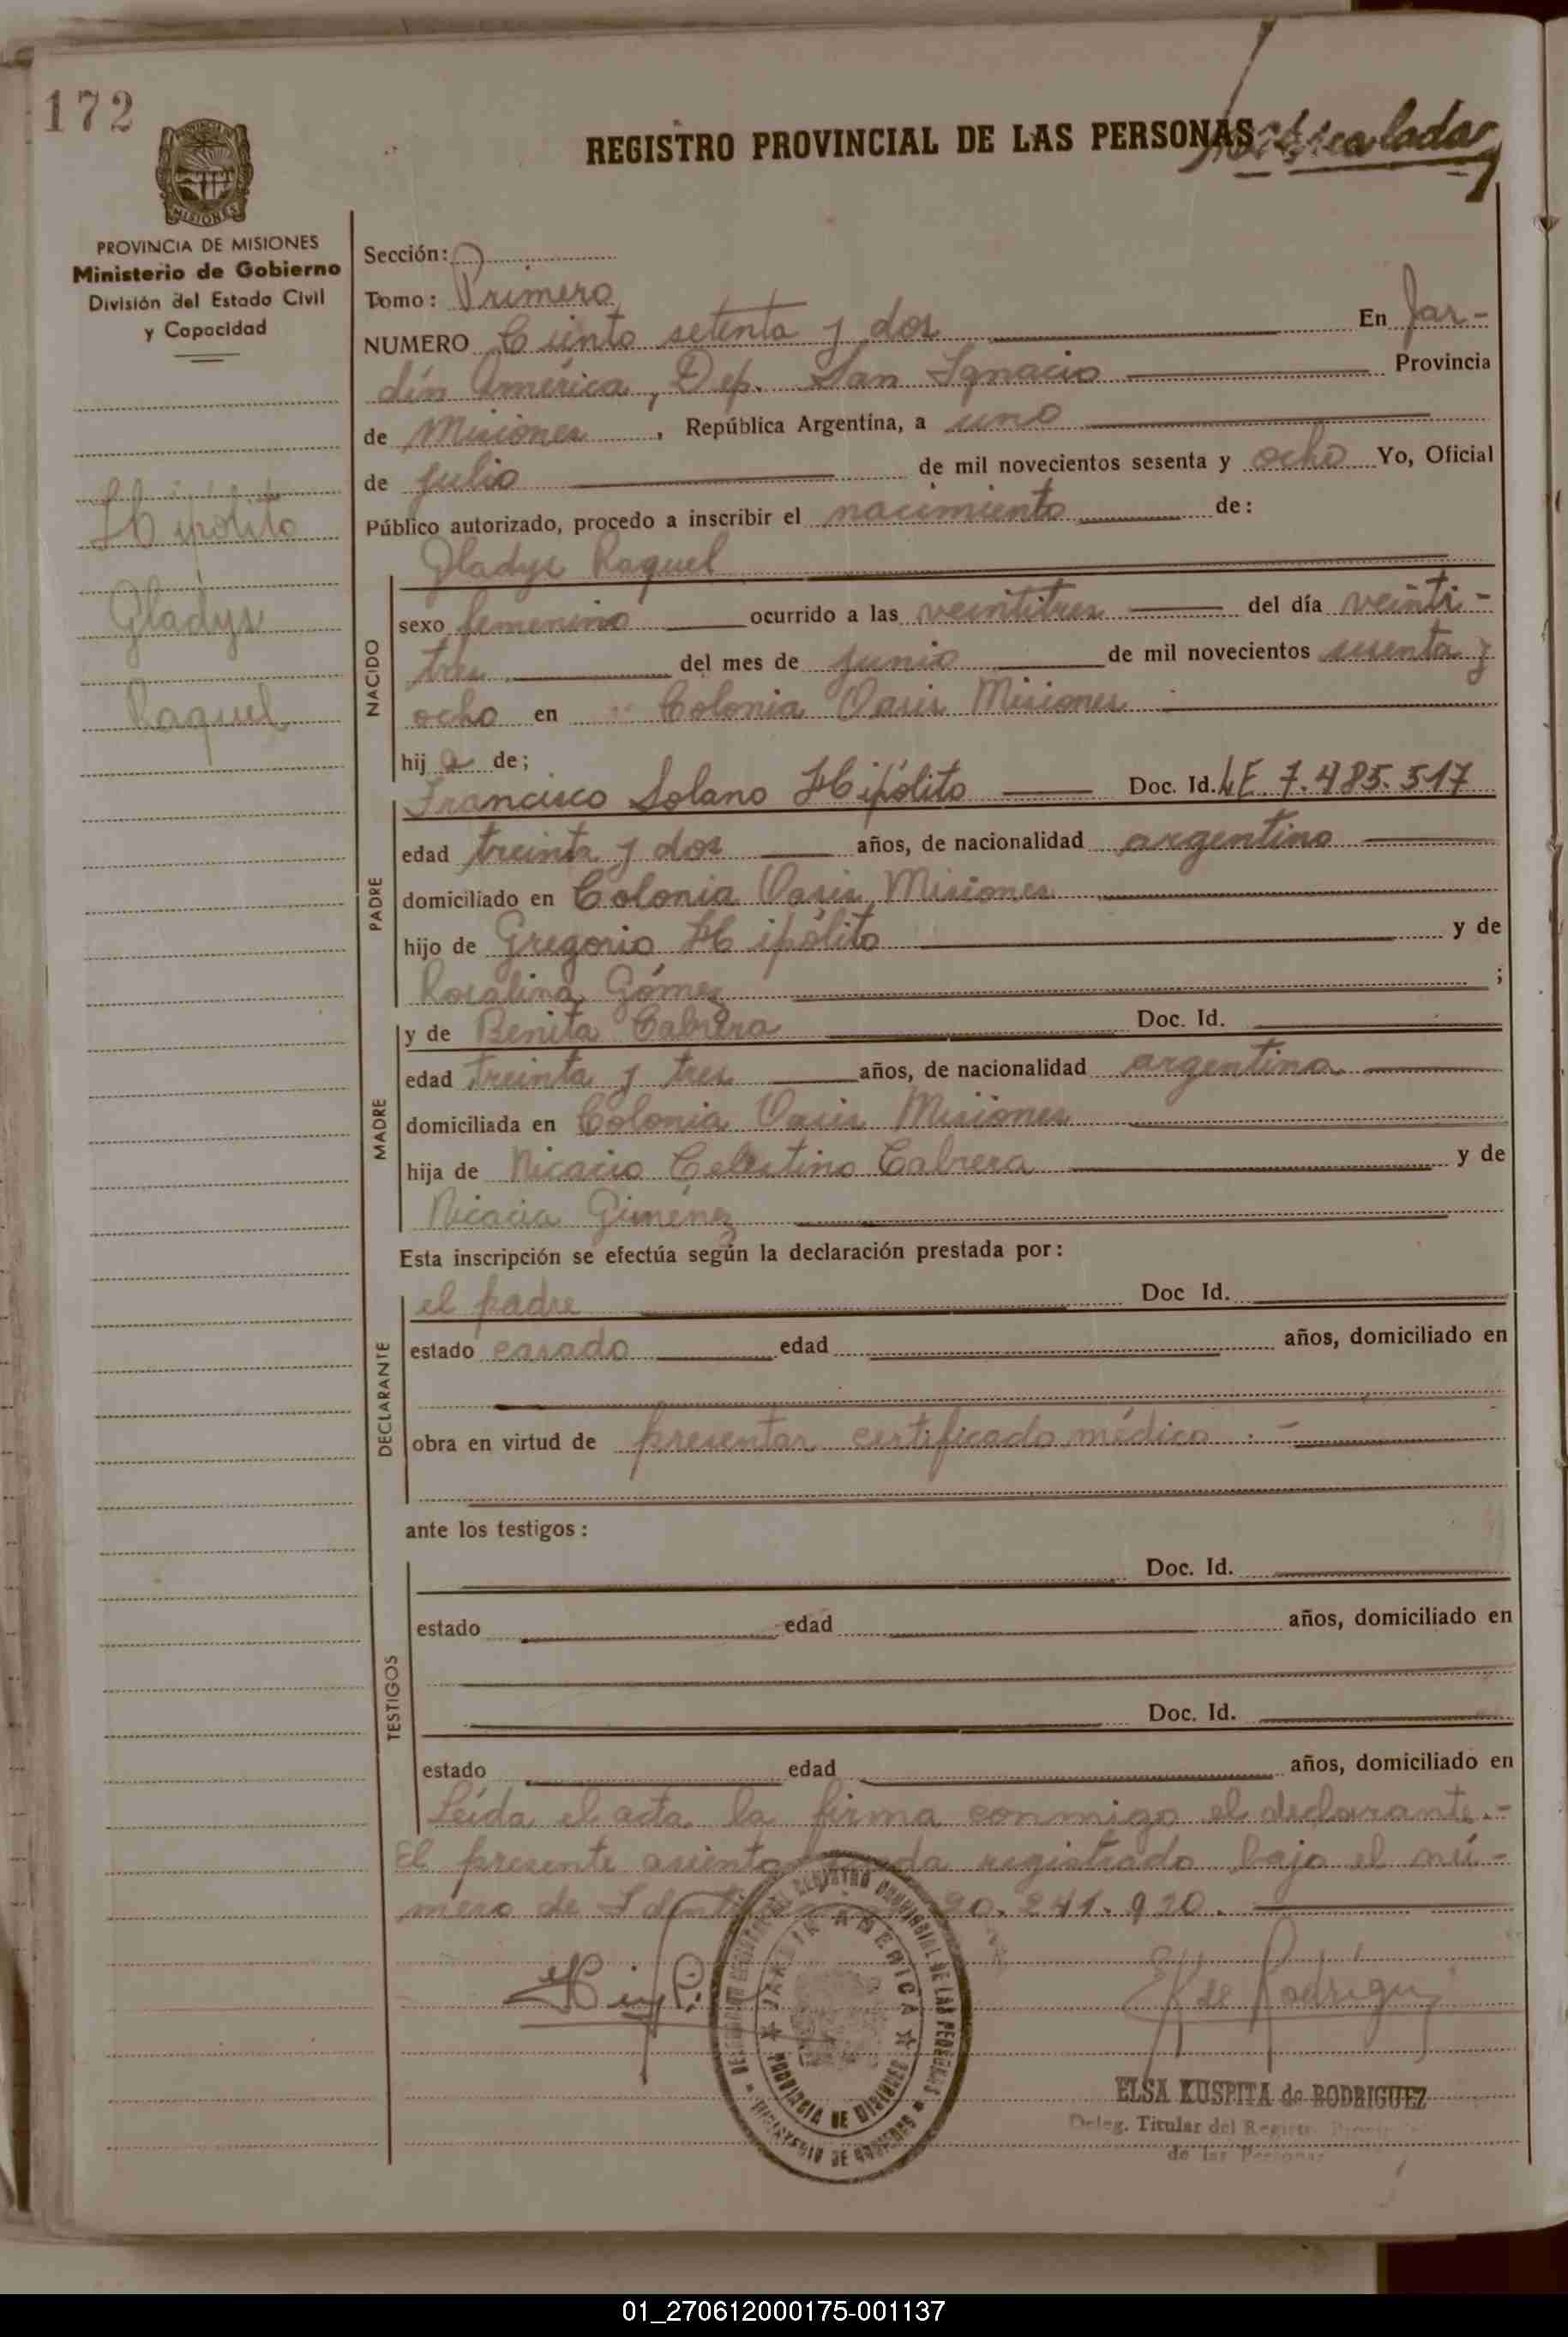 172
REGISTRO PROVINCIAL DE LAS PERSONAS
MISIONES
PROVINCIA DE MISIONES
Ministerio de Gobierno
División del Estado Civil
y Capacidad
Hipólito
Gladys
Raquel
Sección:
Tomo: Primero
NUMERO Ciento setenta y dos En Jar-
dín América, Dep. San Ignacio Provincia
de Misiones, República Argentina, a uno
de julio de mil novecientos sesenta y ocho Yo, Oficial
Público autorizado, procedo a inscribir el nacimiento de:
Gladys Raquel
NACIDO
sexo femenino ocurrido a las veintitres del día veinti-
tres del mes de junio de mil novecientos sesenta y
ocho en Colonia Oasis Misiones
hija de;
Francisco Solano Hipólito Doc. Id. LE 7.485.517
PADRE
edad treinta y dos años, de nacionalidad argentino
domiciliado en Colonia Oasis Misiones
hijo de Gregorio Hipólito y de
Rosalina Gómez ;
MADRE
y de Benita Cabrera Doc. Id.
edad treinta y tres años, de nacionalidad argentina
domiciliada en Colonia Oasis Misiones
hija de Nicacio Celestino Cabrera y de
Nicacia Giménez
Esta inscripción se efectúa según la declaración prestada por:
DECLARANTE
el padre Doc Id.
estado casado edad años, domiciliado en
obra en virtud de presentar certificado médico.-
ante los testigos:
TESTIGOS
Doc. Id.
estado edad años, domiciliado en
Doc. Id.
estado edad años, domiciliado en
Leída el acta, la firma conmigo el declarante.-
El presente asiento queda registrado bajo el nú-
mero de 20.241.920.
JARDIN AMERICA
PROVINCIA DE MISIONES
REGISTRO PROVINCIAL DE LAS PERSONAS
MINISTERIO DE GOBIERNO
E K de Rodriguez
ELSA KUSPITA de RODRIGUEZ
Deleg. Titular del Registro
de las Personas
01_270612000175-001137